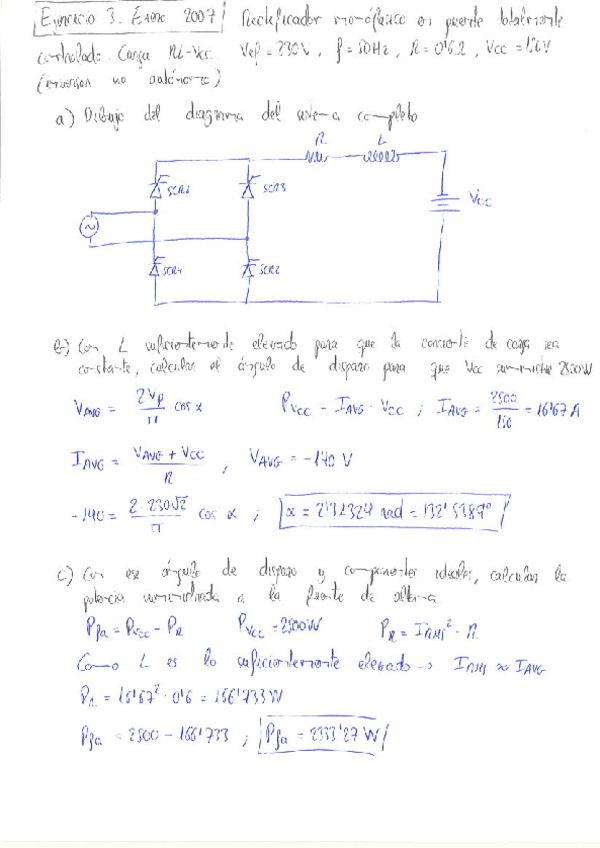 Ejercicio 3. Enero 2007 Rectificador monofásico en puente totalmente
controlado. Carga RL-Vcc. Vef = 230V, f = 50Hz, R = 0'6Ω, Vcc = 150V
(inversor no autónomo)
a) Dibujo del diagrama del sistema completo
R L
SCR1 SCR3
Vcc
SCR4 SCR2
b) Con L suficientemente elevado para que la corriente de carga sea
constante, calcular el ángulo de disparo para que Vcc suministre 2500W
VAVG = 2Vp/π cos α PVCC = IAVG · VCC ; IAVG = 2500/150 = 16'67 A
IAVG = (VAVG + VCC)/R , VAVG = -140 V
-140 = 2·230√2/π cos α ; α = 2'31324 rad = 132'5389º
c) Con ese ángulo de disparo y componentes ideales, calcular la
potencia suministrada a la fuente de alterna
Pfa = PVCC - PR PVCC = 2500W PR = IRMS² · R
Como L es lo suficientemente elevado → IRMS ≈ IAVG
PR = 16'67² · 0'6 = 166'733 W
Pfa = 2500 - 166'733 ; Pfa = 2333'27 W